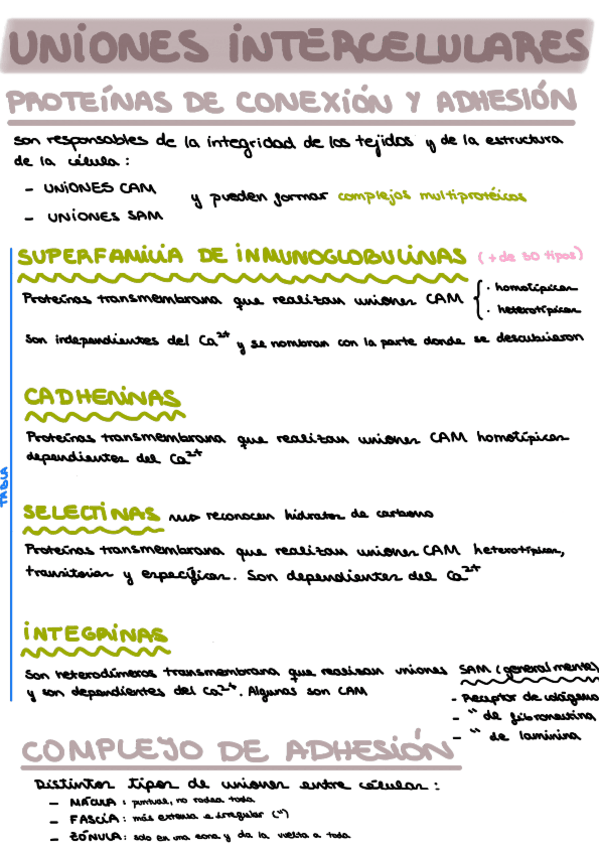 UNIONES INTERCELULARES
PROTEÍNAS DE CONEXIÓN Y ADHESIÓN
son responsables de la integridad de los tejidos y de la estructura
de la célula:
- UNIONES CAM
y pueden formar complejos multiprotéicos
- UNIONES SAM
SUPERFAMILIA DE INMUNOGLOBULINAS (+ de 30 tipos)
Proteínas transmembrana que realizan uniones CAM { · homotípicas
· heterotípicas
Son independientes del Ca²⁺ y se nombran con la parte donde se descubrieron
TABLA
CADHERINAS
Proteínas transmembrana que realizan uniones CAM homotípicas
dependientes del Ca²⁺
SELECTINAS → reconocen hidratos de carbono
Proteínas transmembrana que realizan uniones CAM heterotípicas,
transitorias y específicas. Son dependientes del Ca²⁺
INTEGRINAS
Son heterodímeros transmembrana que realizan uniones SAM (generalmente)
y son dependientes del Ca²⁺. Algunas son CAM
- Receptor de colágeno
- " de fibronectina
- " de laminina
COMPLEJO DE ADHESIÓN
Distintos tipos de uniones entre células:
- MÁCULA: puntual, no rodea toda
- FASCIA: más extensa e irregular (")
- ZÓNULA: solo en una zona y da la vuelta a toda